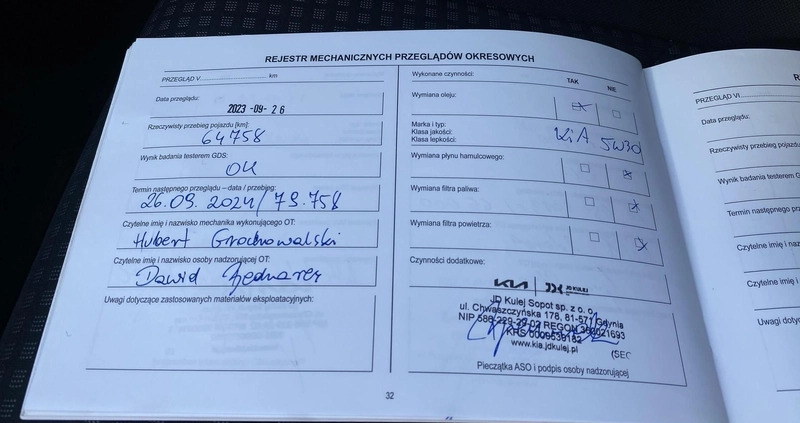 REJESTR MECHANICZNYCH PRZEGLĄDÓW OKRESOWYCH
PRZEGLĄD V km
Data przeglądu:
2023 -09- 26
Rzeczywisty przebieg pojazdu [km]:
64758
Wynik badania testerem GDS:
OK
Termin następnego przeglądu – data / przebieg:
26.09.2024/79.758
Czytelne imię i nazwisko mechanika wykonującego OT:
Hubert Grochowalski
Czytelne imię i nazwisko osoby nadzorującej OT:
Dawid Bednarek
Uwagi dotyczące zastosowanych materiałów eksploatacyjnych:
Wykonane czynności:
TAK NIE
Wymiana oleju:
Marka i typ:
Klasa jakości:
Klasa lepkości:
KiA 5W30
Wymiana płynu hamulcowego:
Wymiana filtra paliwa:
Wymiana filtra powietrza:
Czynności dodatkowe:
KIA JD KULEJ
JD Kulej Sopot sp. z o. o.
ul. Chwaszczyńska 178, 81-571 Gdynia
NIP 586-229-39-02 REGON
www.kia.jdkulej.pl
(SEC
Pieczątka ASO i podpis osoby nadzorującej
32
R
PRZEGLĄD VI
Data przeglądu:
Rzeczywisty przebieg poja
Wynik badania testerem G
Termin następnego prz
Czytelne imię i nazw
Czytelne imię i
Uwagi dotyc